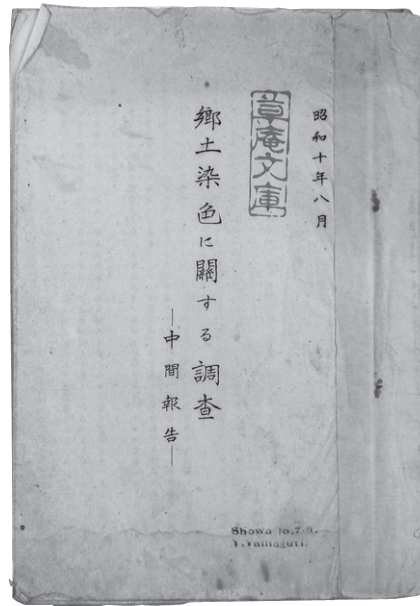 昭和十年八月
草庵文庫
郷土染色に關する調査
―中間報告―
Showa 10.7.8.
Y.Yamaguti.